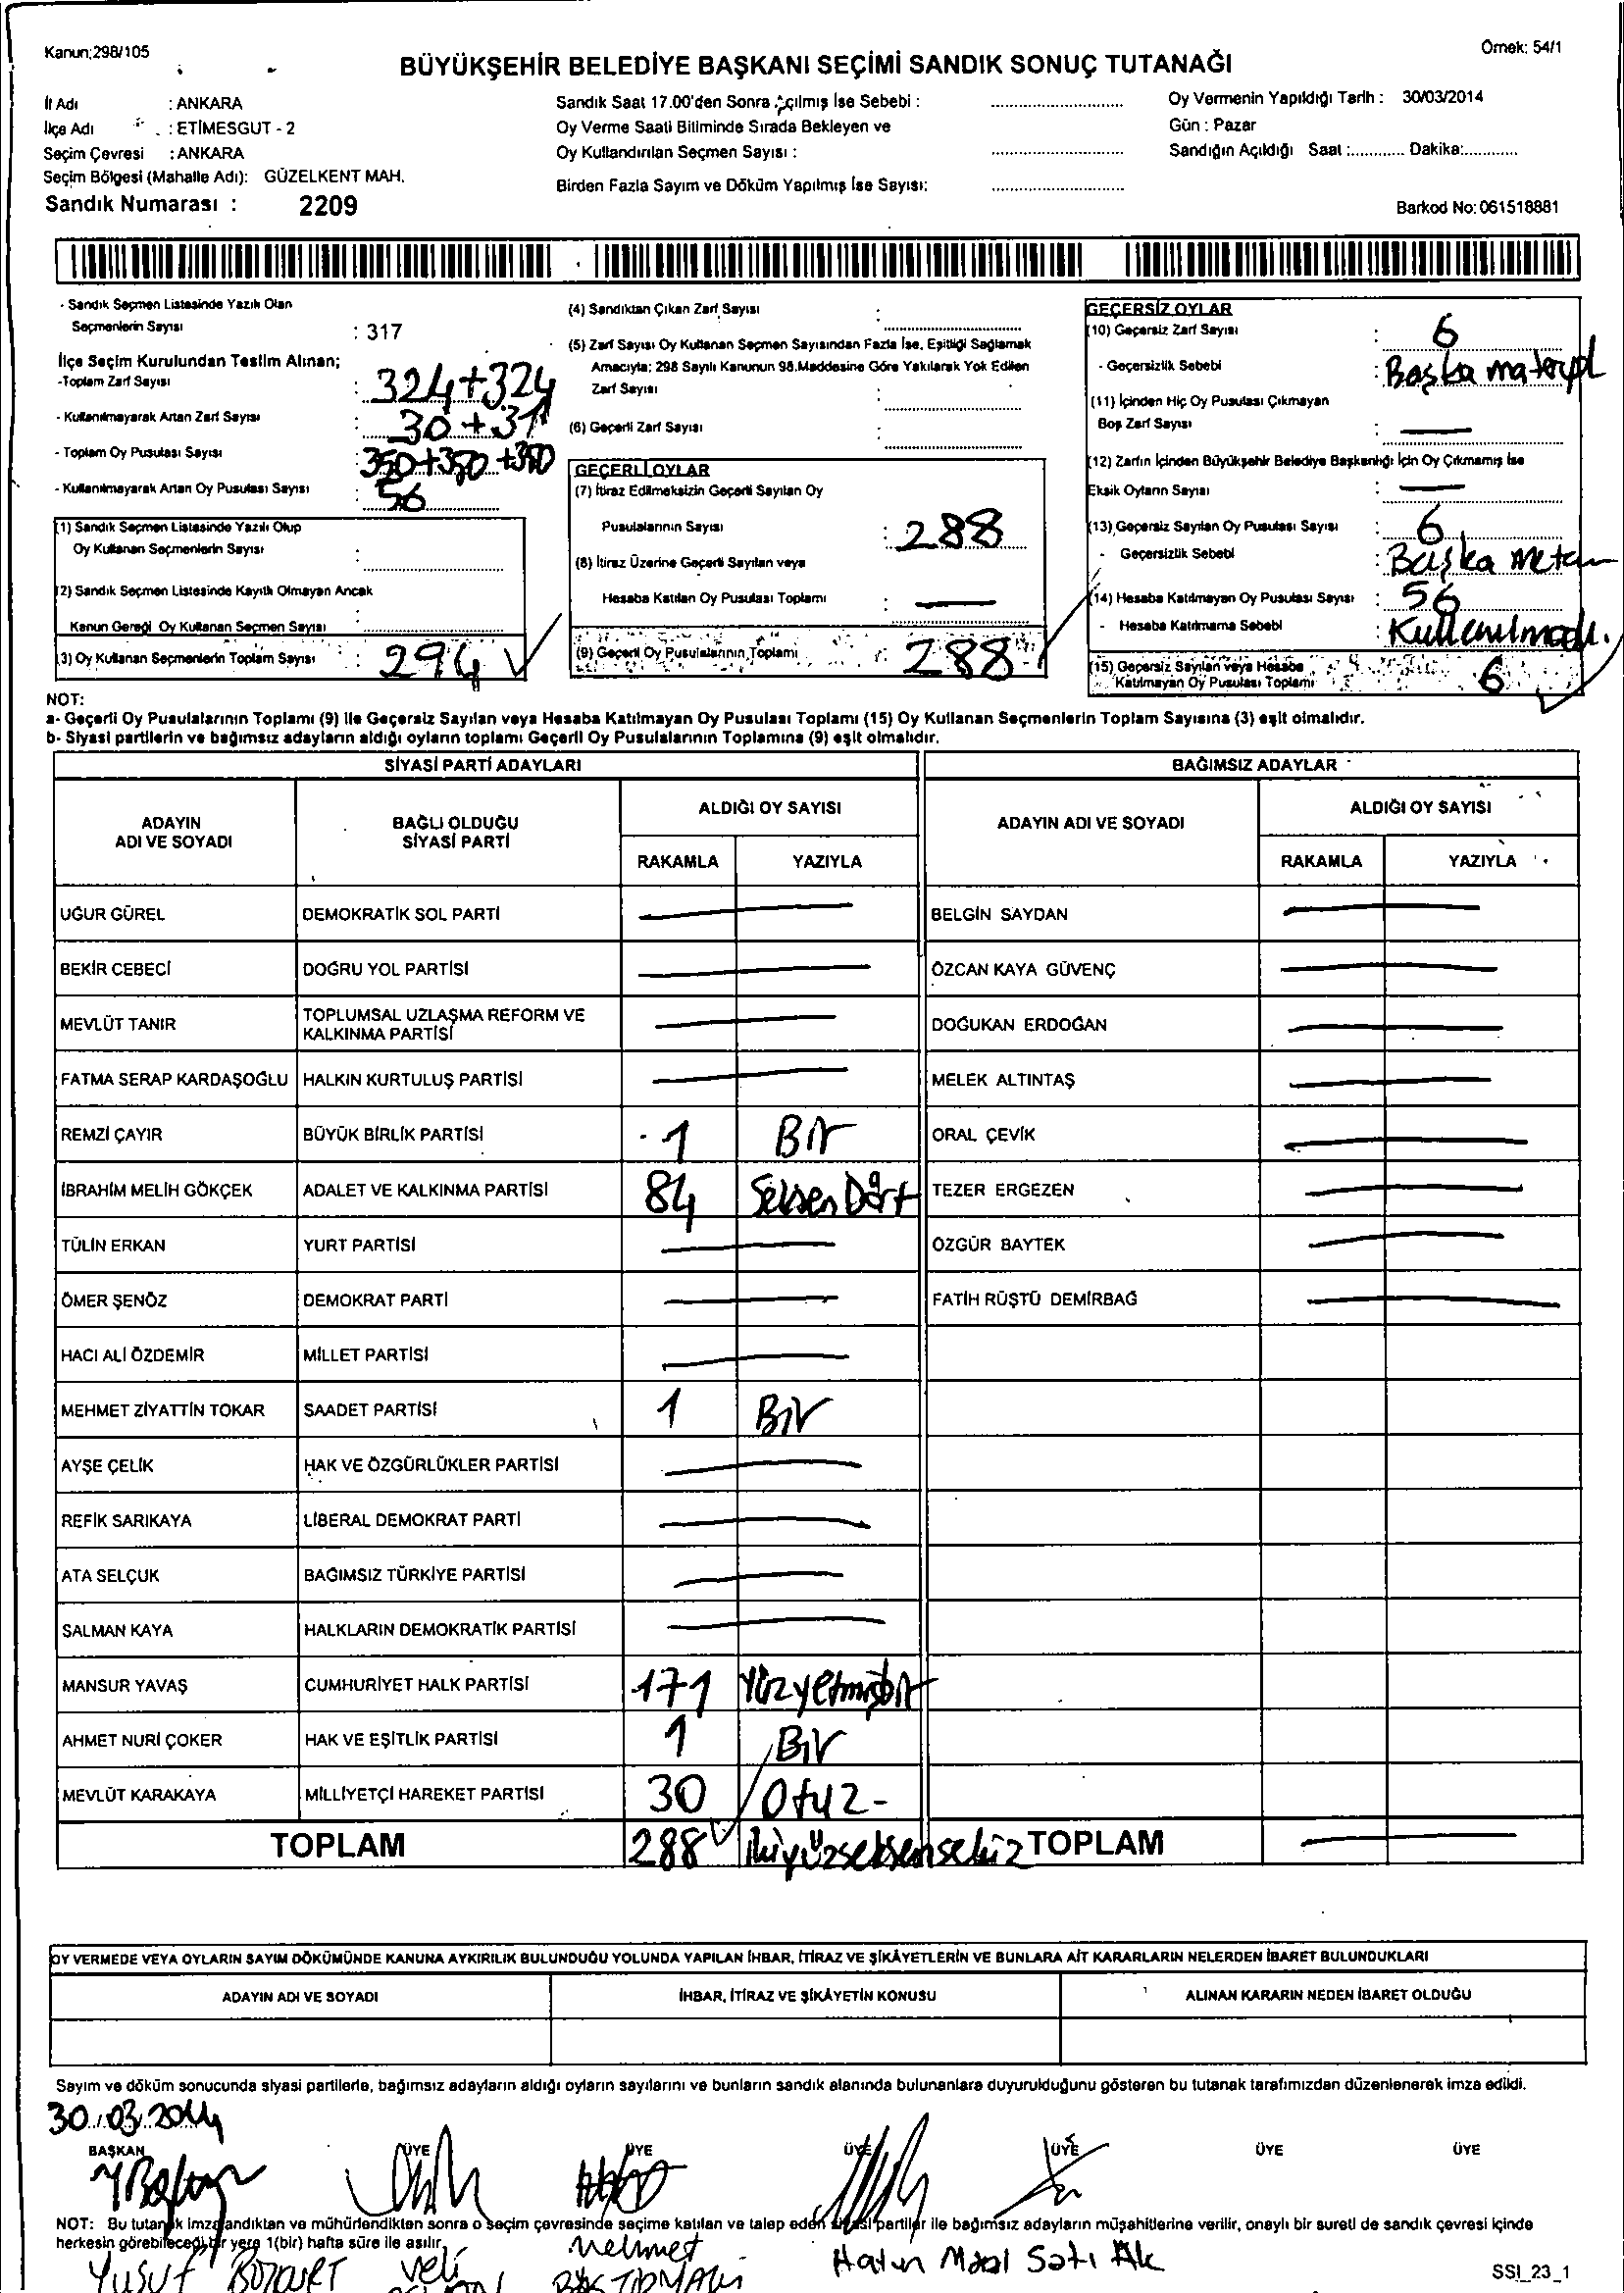 Kanun;298/105
Örnek: 54/1
BÜYÜKŞEHİR BELEDİYE BAŞKANI SEÇİMİ SANDIK SONUÇ TUTANAĞI
İl Adı : ANKARA
İlçe Adı : ETİMESGUT - 2
Seçim Çevresi : ANKARA
Seçim Bölgesi (Mahalle Adı): GÜZELKENT MAH.
Sandık Numarası : 2209
Sandık Saat 17.00'den Sonra Açılmış İse Sebebi :
Oy Verme Saati Bitiminde Sırada Bekleyen ve
Oy Kullandırılan Seçmen Sayısı :
Birden Fazla Sayım ve Döküm Yapılmış İse Sayısı:
Oy Vermenin Yapıldığı Tarih : 30/03/2014
Gün : Pazar
Sandığın Açıldığı Saat :............ Dakika:............
Barkod No: 061518881
- Sandık Seçmen Listesinde Yazılı Olan
Seçmenlerin Sayısı : 317
İlçe Seçim Kurulundan Teslim Alınan;
-Toplam Zarf Sayısı : 324+324
- Kullanılmayarak Artan Zarf Sayısı : 30+31
- Toplam Oy Pusulası Sayısı : 350+350+350
- Kullanılmayarak Artan Oy Pusulası Sayısı : 56
(1) Sandık Seçmen Listesinde Yazılı Olup
Oy Kullanan Seçmenlerin Sayısı :
(2) Sandık Seçmen Listesinde Kayıtlı Olmayan Ancak
Kanun Gereği Oy Kullanan Seçmen Sayısı :
(3) Oy Kullanan Seçmenlerin Toplam Sayısı : 294
(4) Sandıktan Çıkan Zarf Sayısı :
(5) Zarf Sayısı Oy Kullanan Seçmen Sayısından Fazla İse, Eşitliği Sağlamak
Amacıyla; 298 Sayılı Kanunun 98.Maddesine Göre Yakılarak Yok Edilen
Zarf Sayısı :
(6) Geçerli Zarf Sayısı :
GEÇERLİ OYLAR
(7) İtiraz Edilmeksizin Geçerli Sayılan Oy
Pusulalarının Sayısı : 288
(8) İtiraz Üzerine Geçerli Sayılan veya
Hesaba Katılan Oy Pusulası Toplamı : —
(9) Geçerli Oy Pusulalarının Toplamı : 288
GEÇERSİZ OYLAR
(10) Geçersiz Zarf Sayısı : 6
- Geçersizlik Sebebi : Başka materyal
(11) İçinden Hiç Oy Pusulası Çıkmayan
Boş Zarf Sayısı : —
(12) Zarfın İçinden Büyükşehir Belediye Başkanlığı İçin Oy Çıkmamış İse
Eksik Oyların Sayısı : —
(13) Geçersiz Sayılan Oy Pusulası Sayısı : 6
- Geçersizlik Sebebi : Başka
(14) Hesaba Katılmayan Oy Pusulası Sayısı : 56
- Hesaba Katılmama Sebebi : Kullanılmadı.
(15) Geçersiz Sayılan veya Hesaba
Katılmayan Oy Pusulası Toplamı 6
NOT:
a- Geçerli Oy Pusulalarının Toplamı (9) ile Geçersiz Sayılan veya Hesaba Katılmayan Oy Pusulası Toplamı (15) Oy Kullanan Seçmenlerin Toplam Sayısına (3) eşit olmalıdır.
b- Siyasi partilerin ve bağımsız adayların aldığı oyların toplamı Geçerli Oy Pusulalarının Toplamına (9) eşit olmalıdır.
SİYASİ PARTİ ADAYLARI BAĞIMSIZ ADAYLAR
ADAYIN ADI VE SOYADI BAĞLI OLDUĞU SİYASİ PARTİ ALDIĞI OY SAYISI ADAYIN ADI VE SOYADI ALDIĞI OY SAYISI
RAKAMLA YAZIYLA RAKAMLA YAZIYLA
UĞUR GÜREL DEMOKRATİK SOL PARTİ — BELGİN SAYDAN —
BEKİR CEBECİ DOĞRU YOL PARTİSİ — ÖZCAN KAYA GÜVENÇ —
MEVLÜT TANIR TOPLUMSAL UZLAŞMA REFORM VE KALKINMA PARTİSİ — DOĞUKAN ERDOĞAN —
FATMA SERAP KARDAŞOĞLU HALKIN KURTULUŞ PARTİSİ — MELEK ALTINTAŞ —
REMZİ ÇAYIR BÜYÜK BİRLİK PARTİSİ 1 Bir ORAL ÇEVİK —
İBRAHİM MELİH GÖKÇEK ADALET VE KALKINMA PARTİSİ 84 Seksen Dört TEZER ERGEZEN —
TÜLİN ERKAN YURT PARTİSİ — ÖZGÜR BAYTEK —
ÖMER ŞENÖZ DEMOKRAT PARTİ — FATİH RÜŞTÜ DEMİRBAĞ —
HACI ALİ ÖZDEMİR MİLLET PARTİSİ —
MEHMET ZİYATTİN TOKAR SAADET PARTİSİ 1 Bir
AYŞE ÇELİK HAK VE ÖZGÜRLÜKLER PARTİSİ —
REFİK SARIKAYA LİBERAL DEMOKRAT PARTİ —
ATA SELÇUK BAĞIMSIZ TÜRKİYE PARTİSİ —
SALMAN KAYA HALKLARIN DEMOKRATİK PARTİSİ —
MANSUR YAVAŞ CUMHURİYET HALK PARTİSİ 171 Yüzyetmişbir
AHMET NURİ ÇOKER HAK VE EŞİTLİK PARTİSİ 1 Bir
MEVLÜT KARAKAYA MİLLİYETÇİ HAREKET PARTİSİ 30 Otuz-
TOPLAM 288 ikiyüzseksensekiz TOPLAM —
OY VERMEDE VEYA OYLARIN SAYIM DÖKÜMÜNDE KANUNA AYKIRILIK BULUNDUĞU YOLUNDA YAPILAN İHBAR, İTİRAZ VE ŞİKÂYETLERİN VE BUNLARA AİT KARARLARIN NELERDEN İBARET BULUNDUKLARI
ADAYIN ADI VE SOYADI İHBAR, İTİRAZ VE ŞİKÂYETİN KONUSU ALINAN KARARIN NEDEN İBARET OLDUĞU
Sayım ve döküm sonucunda siyasi partilerle, bağımsız adayların aldığı oyların sayılarını ve bunların sandık alanında bulunanlara duyurulduğunu gösteren bu tutanak tarafımızdan düzenlenerek imza edildi.
30.03.2014
BAŞKAN ÜYE ÜYE ÜYE ÜYE ÜYE ÜYE
NOT: Bu tutanak imzalandıktan ve mühürlendikten sonra o seçim çevresinde seçime katılan ve talep eden siyasi partiler ile bağımsız adayların müşahitlerine verilir, onaylı bir sureti de sandık çevresi içinde
herkesin görebileceği bir yere 1(bir) hafta süre ile asılır.
Yusuf BOZKURT Veli Mehmet Satı Ak
SSI_23_1